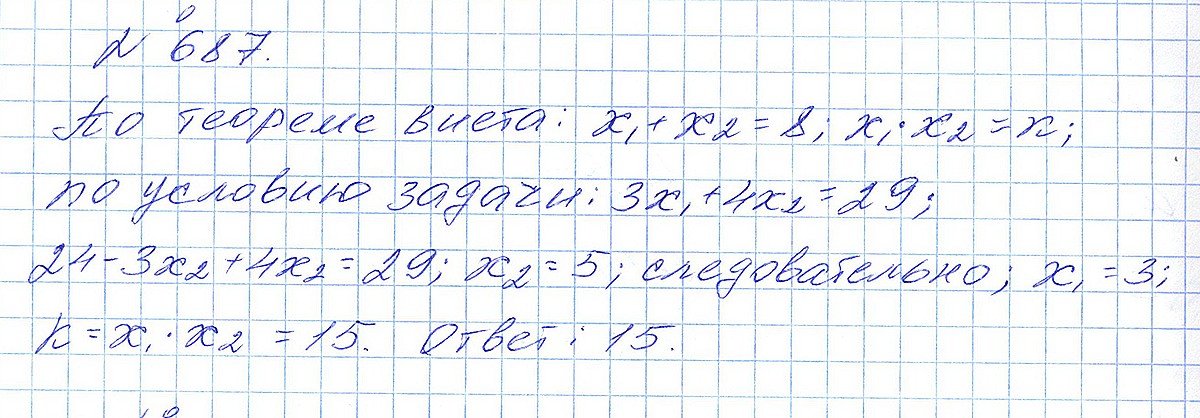 N° 687.
По теореме виета: x₁ + x₂ = 8; x₁ · x₂ = к;
по условию задачи: 3x₁ + 4x₂ = 29;
24 - 3x₂ + 4x₂ = 29; x₂ = 5; следовательно; x₁ = 3;
к = x₁ · x₂ = 15. Ответ: 15.